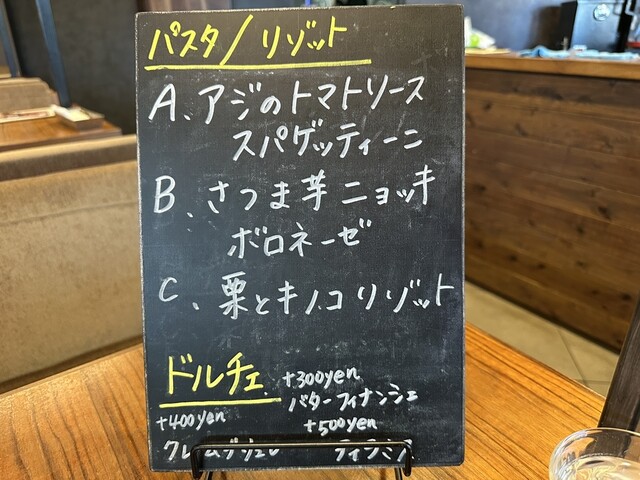 パスタ/リゾット
A、アジのトマトソース
スパゲッティーニ
B、さつま芋ニョッキ
ボロネーゼ
C、栗とキノコリゾット
ドルチェ
+300yen
バターフィナンシェ
+400yen
+500yen
クレームブリュレ
ティラミス